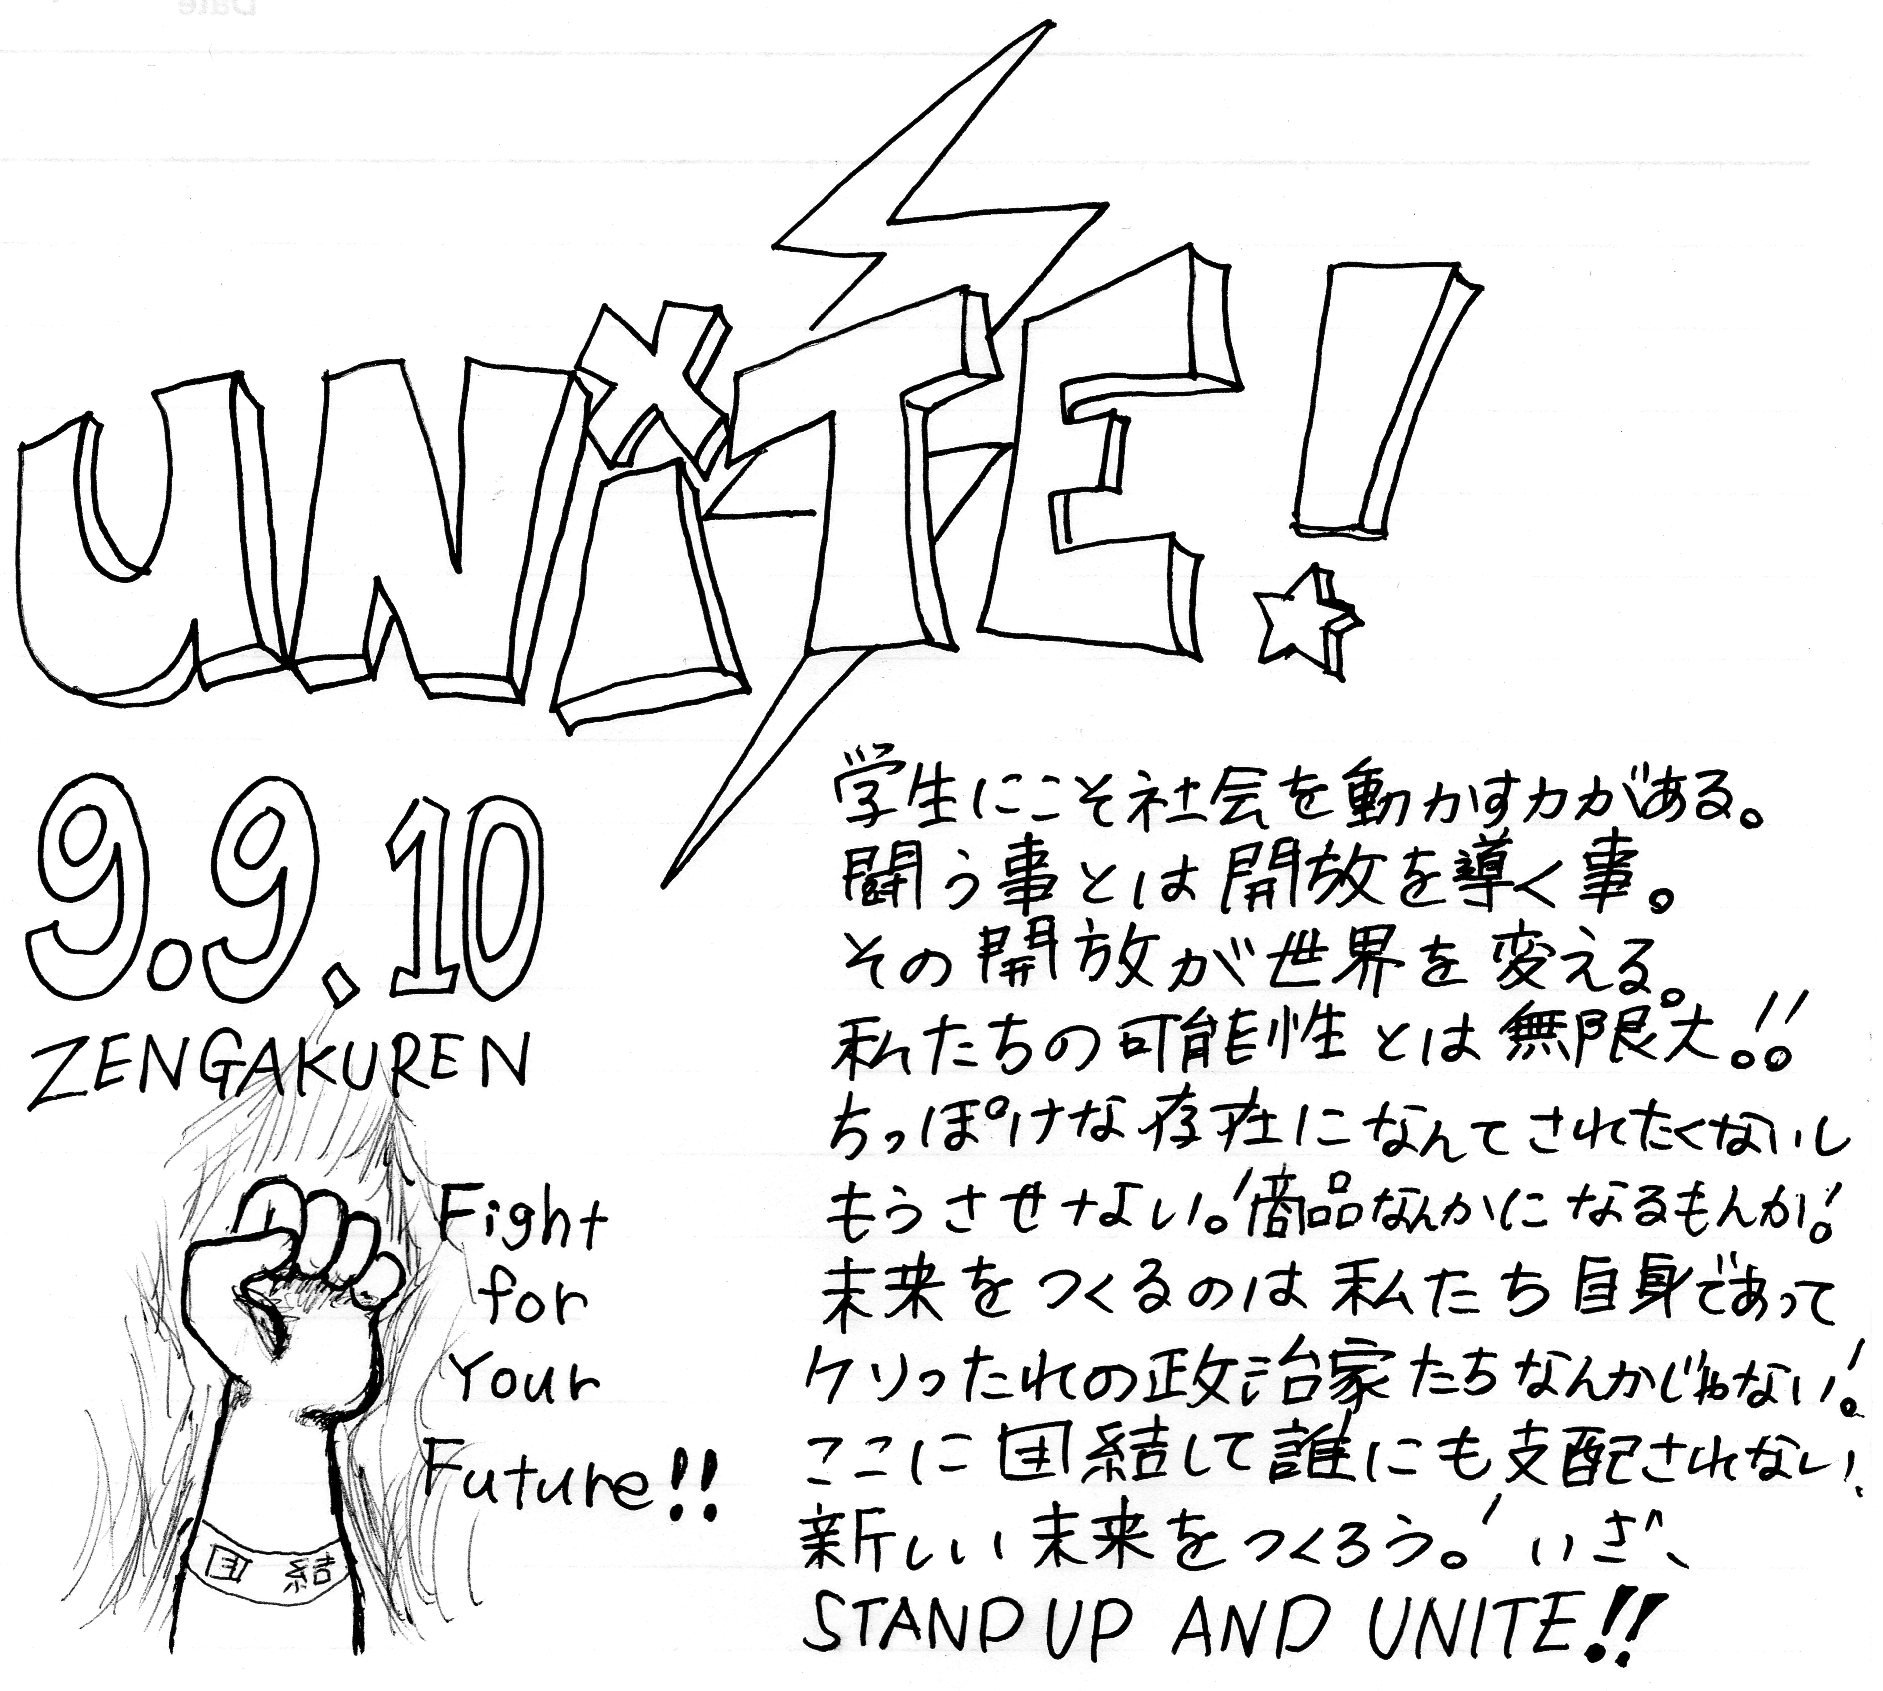 UNiTE!
9.9.10
ZENGAKUREN
Fight
for
Your
Future!!
団結
学生にこそ社会を動かす力がある。
闘う事とは開放を導く事。
その開放が世界を変える。
私たちの可能性とは無限大!!
ちっぽけな存在になんてされたくないし
もうさせない!商品なんかになるもんか!
未来をつくるのは私たち自身であって
クソったれの政治家たちなんかじゃない!
ここに団結して誰にも支配されない、
新しい未来をつくろう!いざ、
STAND UP AND UNITE!!